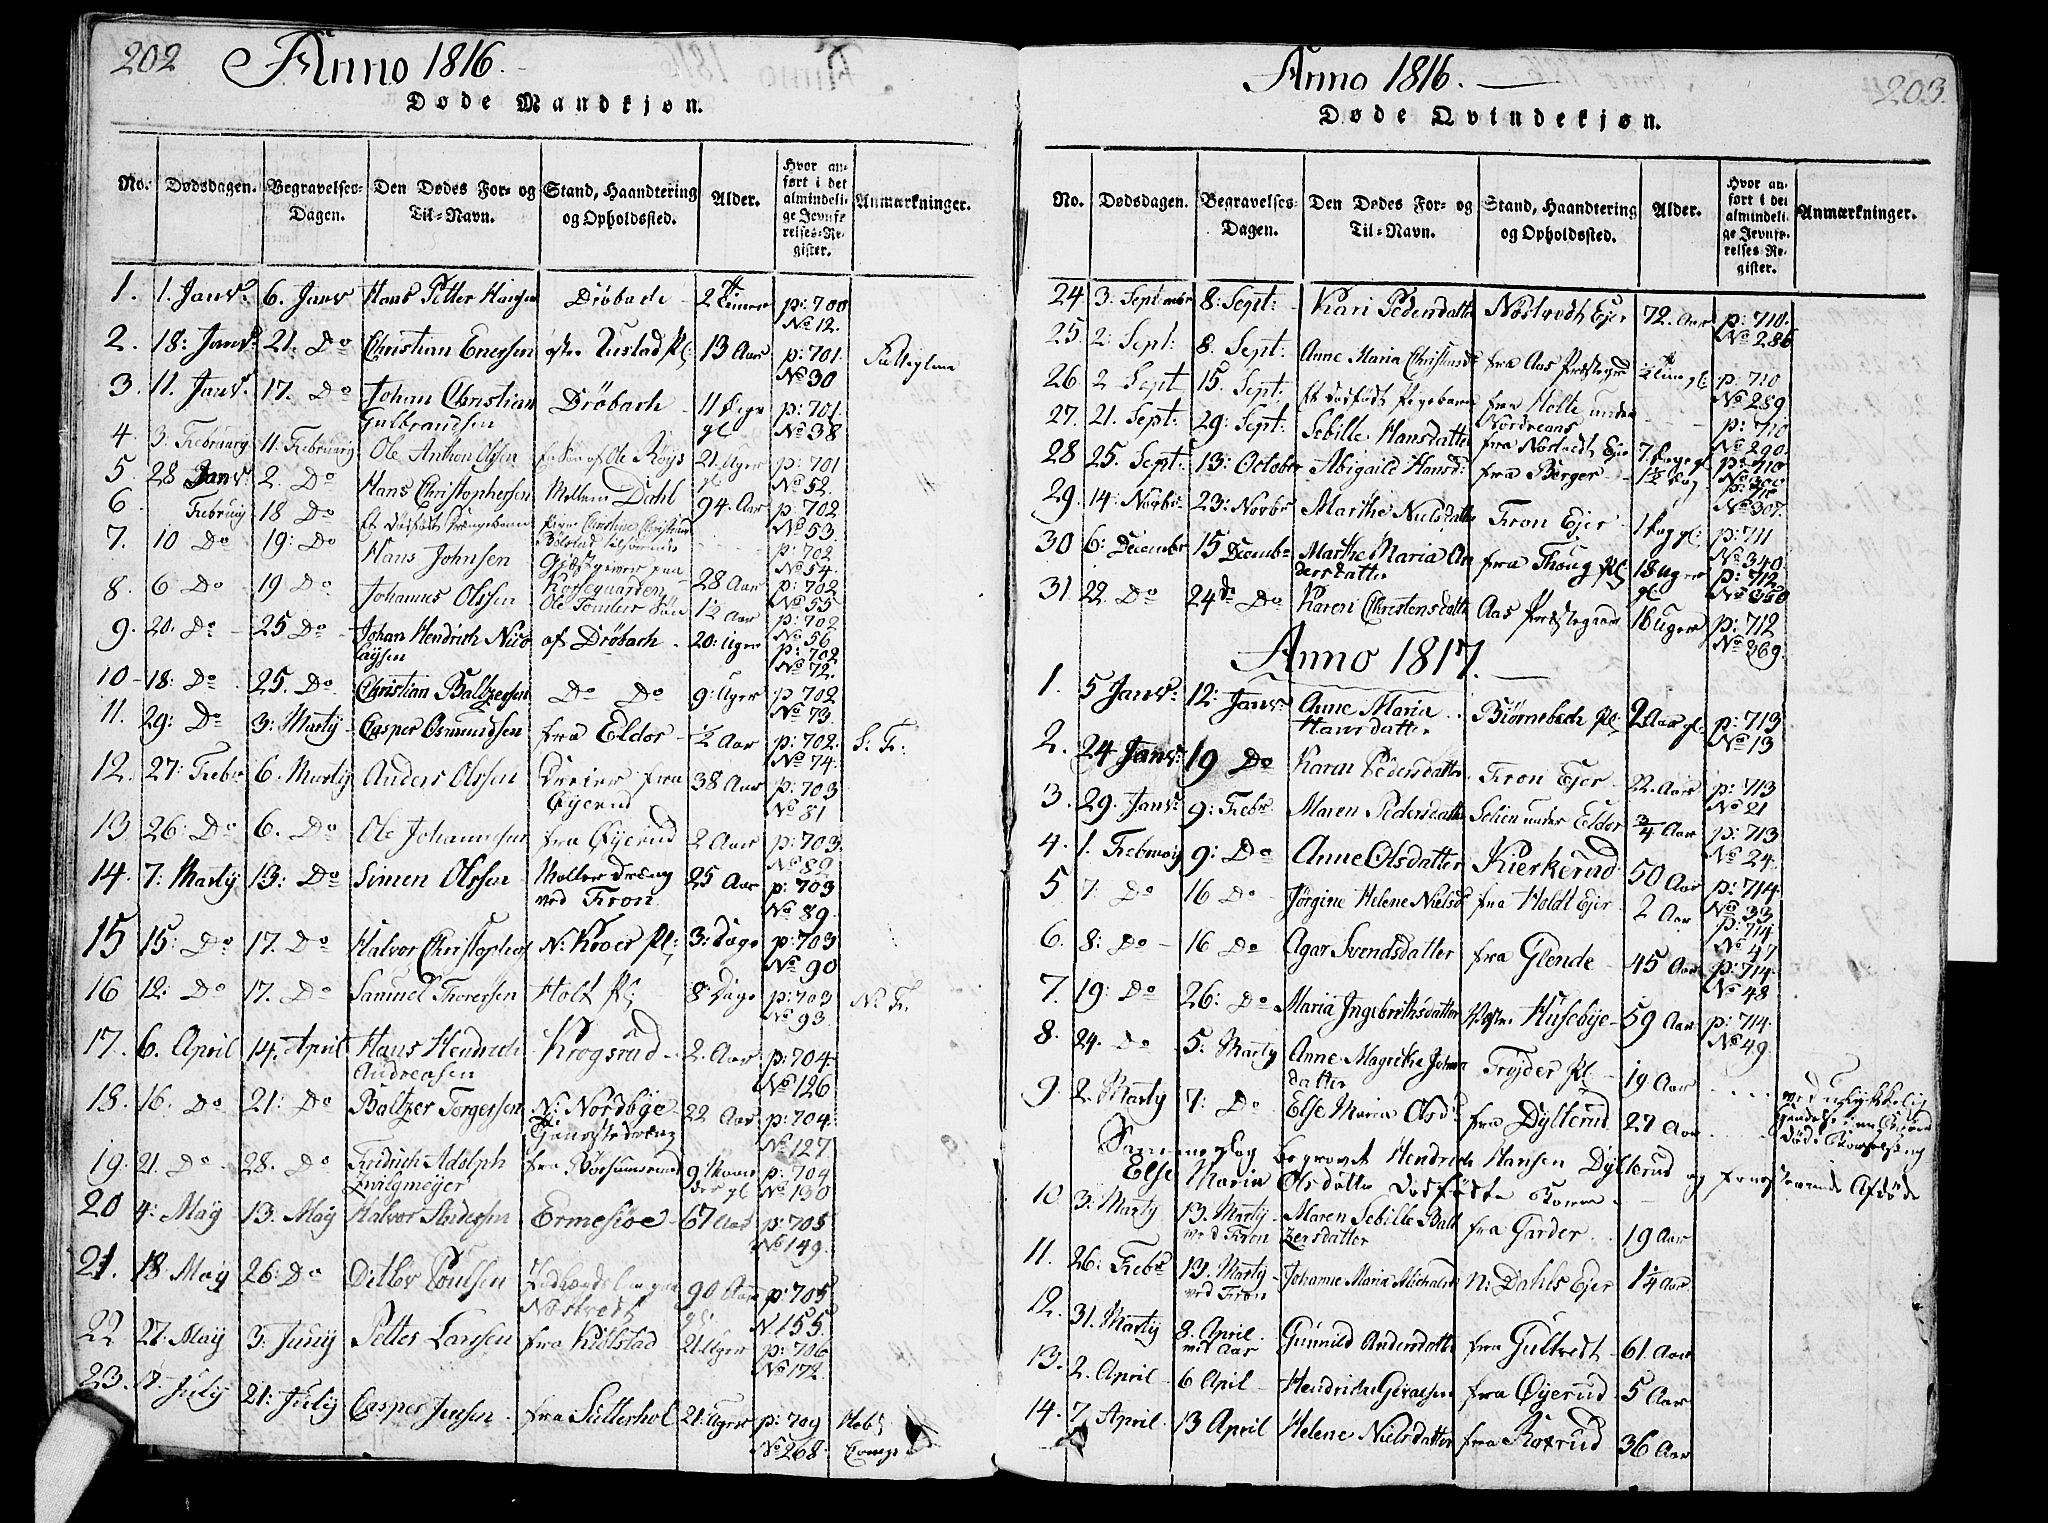 202 Anno 1816.
Døde Mandkjøn.
No. Dødsdagen. Begravelses-Dagen. Den Dødes For- og Til-Navn. Stand, Haandtering og Opholdssted. Alder. Hvor anført i det almindelige Jevnførelses-Register. Anmærkninger.
1. 1. Janv: 6. Janv Hans Petter Hansen Drøbach 2 Timer p: 700 No 12.
2. 18: Janv: 21. Do Christian Enersen Rustad Pl: 13 Aar p: 701. No 30
3. 11. Janv: 17. Do Johan Christian Gulbrandsen Drøbach 11 Dage gl p: 701. No 38
4. 3. Februarij 11. Februarij Ole Anthon Olsen Søn af Ole Røys 21. Uger gl p: 701 No 52.
5. 28 Janv: 2. Do Hans Christophersen Mellem Dahl 94. Aar p: 702 No 53.
6. Februarij 18 Do Et dødfødt Drengebarn p: 702 No 54.
7. 10 Do 19: Do Hans Johnsen Giæstgiver paa Korsegaarden 28 Aar p: 702 No 55
8. 6 Do 19 Do Johannes Olsen Ole Tomters Søn 1½ Aar p: 702 No 56
9. 20. Do 25 Do Johan Hendrich Nicolaysen af Drøbach 20: Uger p: 702 No 72.
10 18: Do 25. Do Christian Baltzersen Do Do 9: Uger p: 702 No 73.
11. 29: Do 3: Martij Casper Osmundsen fra Eldor ½ Aar p: 702. No 74. S: Fr:
12. 27: Febr 6. Martij Anders Olsen Dreier fra Øÿerud 38 Aar p: 703 No 81
13. 26: Do 6. Do Ole Johannesen fra Øÿerud 2 Aar p: 703. No 82
14. 7: Martij 13: Do Simen Olsen Møller Dreng ved Fron 25 Aar p: 703 No 89.
15 15: Do 17. Do Halvor Christophers N: Kroer Pl: 3: Dage p: 703 No 90
16 12: Do 17. Do Samuel Thoresen Holt Pl: 8: Dage p: 703 No 93. N: Fr.
17. 6. April 14. April Hans Hendrich Andreasen Krogsrud 2. Aar p: 704. No 126
18. 16. Do 21: Do Baltzer Torgersen N: Nordbye Tjenestedreng 22 Aar p: 704. No 127
19. 21. Do 28. Do Fridrich Adolph Zwilgmeyer fra 9 Maaneder gl p: 704 No 130
20 4: Maÿ 13. Maÿ Halvor Andersen Ermesiøe 67 Aar p: 705 No 149.
21. 18 Maÿ 26: Do Ditlev Poulsen Næstvedt 90 Aar gl: p: 705 N. 155.
22 27. Maÿ 3: Junij Petter Larsen fra Kiølstad 21 Uger p: 706 No 172.
23. 17. Julij 21: Julij Casper Jensen fra Sætterhol 21: Uger p: 709 No 268.
Anno 1816. 203.
Døde Qvindekjøn.
No. Dødsdagen. Begravelses-Dagen. Den Dødes For- og Til-Navn. Stand, Haandtering og Opholdssted. Alder. Hvor anført i det almindelige Jevnførelses-Register. Anmærkninger.
24 3. September 8: Sept: Kari Pedersdatter Næstvedt Ejer 72. Aar p: 710. No 286
25. 2: Sept: 8. Sept: Anne Maria Christensd: fra Aas Præstegrd ½ Time gl p: 710 No 289
26. 2 Sept 15. Sept: Et dødfødt Pigebarn fra Holte under Nordreaas p: 710 No 290
27. 21. Sept: 29: Sept: Sebille Hansdatter fra Næstvedt Ejer 7 Dage gl p: 710
28 25. Sept: 13: October Abigaild Hansd: fra Berger 1½ Dag p: 710 No 307.
29. 14: Novbr 23: Novbr Marthe Nielsdatter Fron Ejer 1 Dag gl: p: 711 No 340
30 6: December 15 Decembr Marthe Maria Andersdatter fra Thoug Pl: 18 Uger gl p: 712 No 350
31. 22. Do 24de Do Karen Christensdatter Aas Præstegaard 16 Uger p: 712 No 369.
Anno 1817.
1. 5 Janv: 12: Janv: Anne Maria Hansdatter Biørnebech Pl: 2 Aar gl. p: 713 No 13
2. 24 Janv: 19 Do Karen Pedersdatter Fron Ejer 22. Aar p: 713 No 21
3. 29. Janv: 9: Febr. Maren Pedersdatter Solien under Eldor ¾ Aar p: 713 No 24.
4. 1. Februarij 9: Do Anne Olsdatter Kierkerud 50 Aar p: 714. No 33
5 7: Do 16 Do Jørgine Helene Nielsd: fra Holdt Ejer 2 Aar p: 714 No 47
6. 8: Do 16 Do Agar Svendsdatter fra Glende 45 Aar p: 714. No 48
7. 19: Do 26: Do Maria Ingebrethsdatter Husebÿe 59 Aar p: 714. No 49.
8. 24. Do 5. Martij Anne Magrethe Johnsdatter Frøyder Pl 19 Aar
9. 2. Martij 7: Do Else Maria Olsd: fra Dÿsterud 27 Aar ved ulykkelig Hændelse i en Brønd
Samme Dag begravet Hendrich Hansen Dÿsterud og forestaaende Afdøde
Else Maria Olsdatter dødfødte Barn
10. 3: Martij 13. Martij ved Fron Maren Sebille Baltzersdatter fra Garder 19 Aar
11. 26: Febr 13. Martij ved Fron Johanne Maria Michelsd N: Dahls Ejer 1¼ Aar
12. 31. Martij 8. April ved Aas Gunnild Andersdatter fra Gultvedt 61 Aar
13. 2. April 6 April Hendrikke fra Øÿerud 5 Aar
14. 7. April 13 April Helene Nielsdatter fra Roxrud 36 Aar